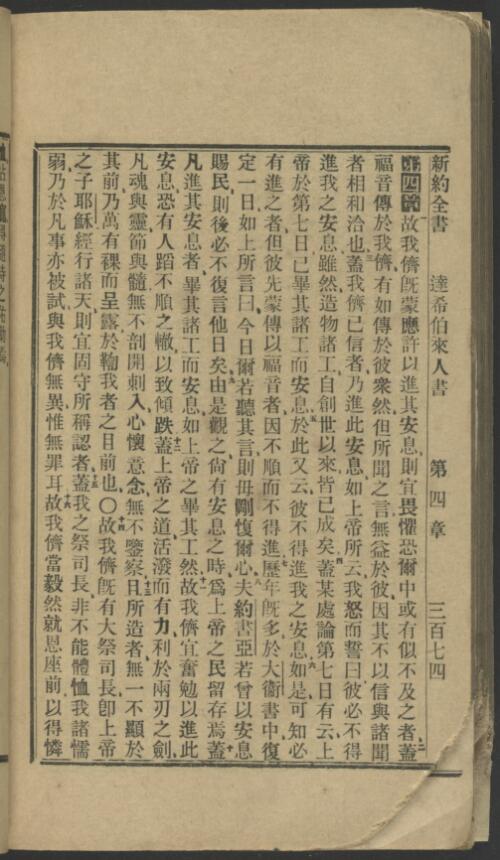 新約全書 達希伯來人書 第四章 三百七四
第四章一故我儕旣蒙應許以進其安息則宜畏懼恐爾中或有似不及之者蓋二
福音傳於我儕有如傳於彼衆然但所聞之言無益於彼因其不以信與諸聞
者相和洽也三蓋我儕已信者乃進此安息如上帝所云我怒而誓曰彼必不得
進我之安息雖然造物諸工自創世以來皆已成矣四蓋某處論第七日有云上
帝於第七日已畢其諸工而安息五於此又云彼不得進我之安息六如是可知必
有進之者但彼先蒙傳以福音者因不順而不得進七歷年旣多於大衞書中復
定一日如上所言曰今日爾若聽其言則毋剛愎爾心八夫約書亞若曾以安息
賜民則後必不復言他日矣九由是觀之尙有安息之時爲上帝之民留存焉十蓋
凡進其安息者畢其諸工而安息如上帝之畢其工然十一故我儕宜奮勉以進此
安息恐有人蹈不順之轍以致傾跌十二蓋上帝之道活潑而有力利於兩刃之劍
凡魂與靈節與髓無不剖開刺入心懷意念無不鑒察十三且所造者無一不顯於
其前乃萬有裸而呈露於鞫我者之目前也○十四故我儕旣有大祭司長卽上帝
之子耶穌經行諸天則宜固守所稱認者十五蓋我之祭司長非不能體恤我諸懦
弱乃於凡事亦被試與我儕無異惟無罪耳十六故我儕當毅然就恩座前以得憐